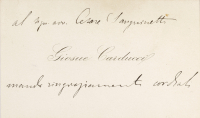 al sig. avv. Cesare Sanguinetti
Giosue Carducci
manda ringraziamenti cordiali